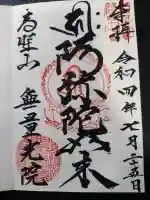 奉拝
令和四年 月二十五日
阿弥陀如来
高野山
無量光院